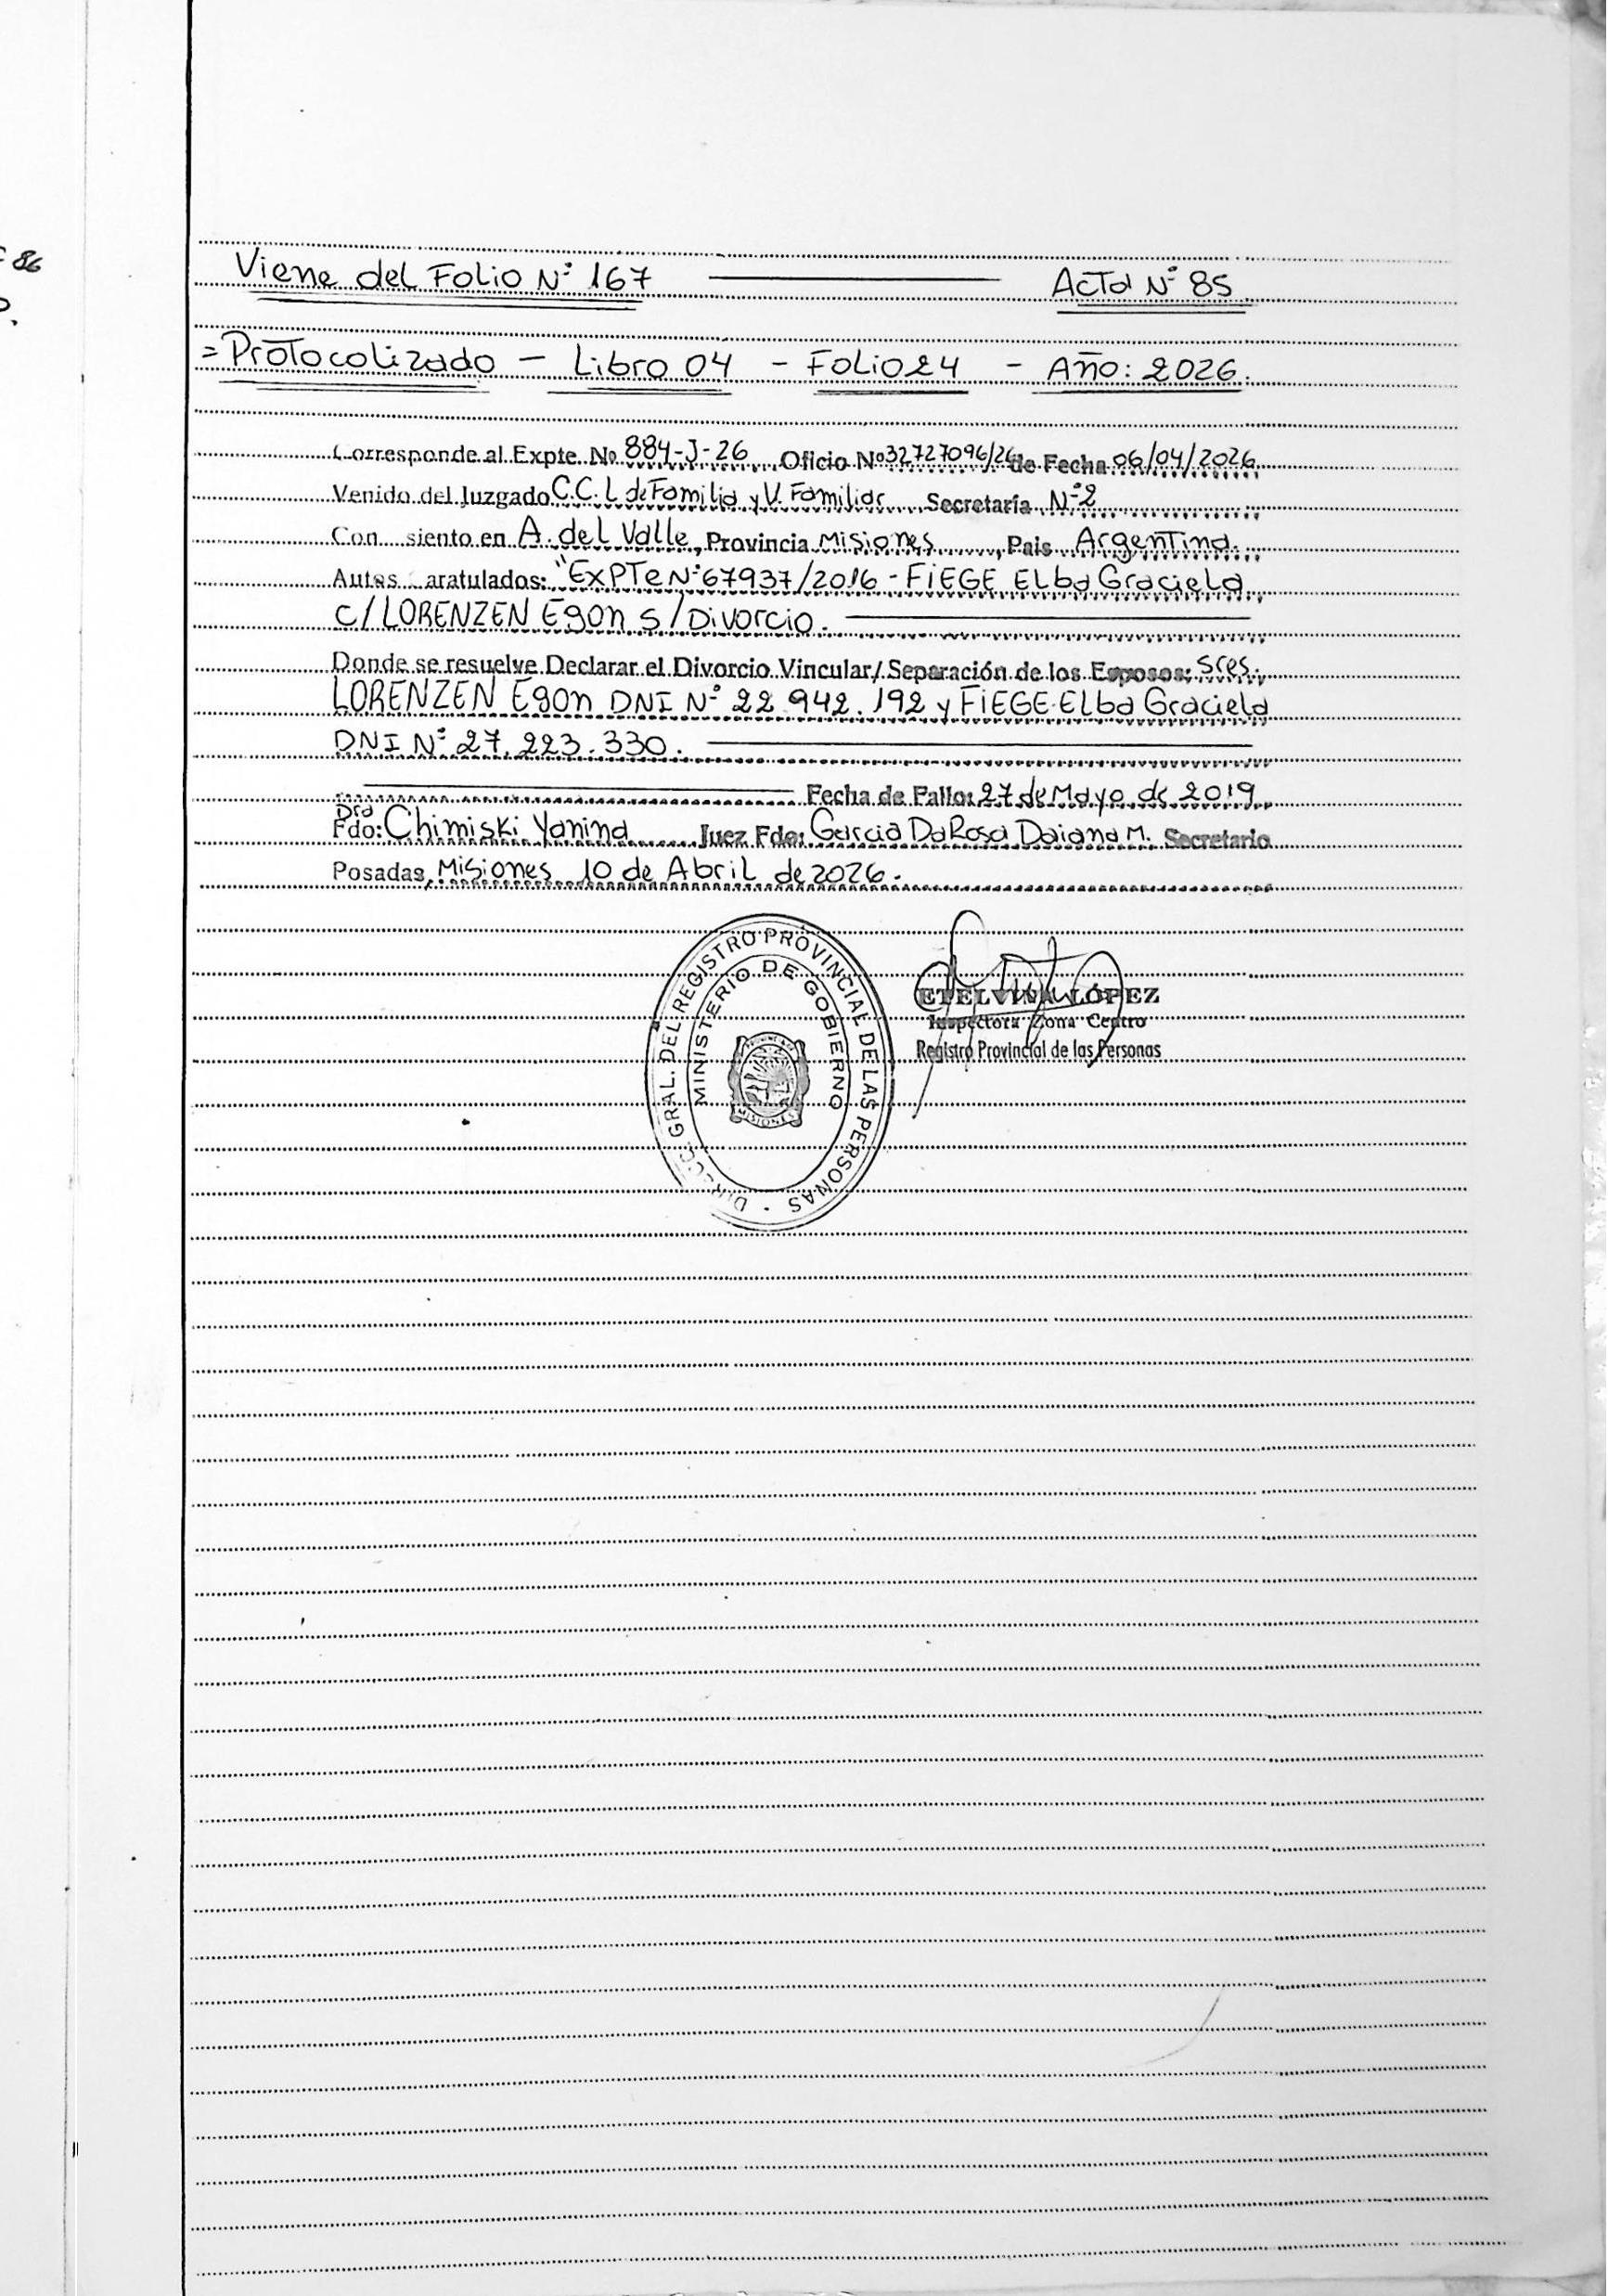 86
Viene del Folio N° 167 Acta N° 85
= Protocolizado - Libro 04 - Folio 24 - Año: 2026.
Corresponde al Expte No 884-J-26 Oficio Nº 32727096/26 de Fecha 06/04/2026
Venido del Juzgado C.C.L de Familia y V. Familiar Secretaría N°2
Con siento en A. del Valle, Provincia Misiones, Pais Argentina.
Autos aratulados: "Expte N°67937/2016 - FIEGE Elba Graciela
C/ LORENZEN Egon S/ Divorcio.
Donde se resuelve Declarar el Divorcio Vincular/ Separación de los Esposos: Sres.
LORENZEN Egon DNI N° 22.942.192 y FIEGE Elba Graciela
DNI N° 27.223.330.
Fecha de Fallo: 27 de Mayo de 2019
Dra
Fdo: Chimiski Yanina Juez Fdo: Garcia Da Rosa Daiana M. Secretario
Posadas, Misiones 10 de Abril de 2026.
DIRECC. GRAL. DEL REGISTRO PROVINCIAL DE LAS PERSONAS -
MINISTERIO DE GOBIERNO
MISIONES
ETELVINA LÓPEZ
Inspectora Zona Centro
Registro Provincial de las Personas